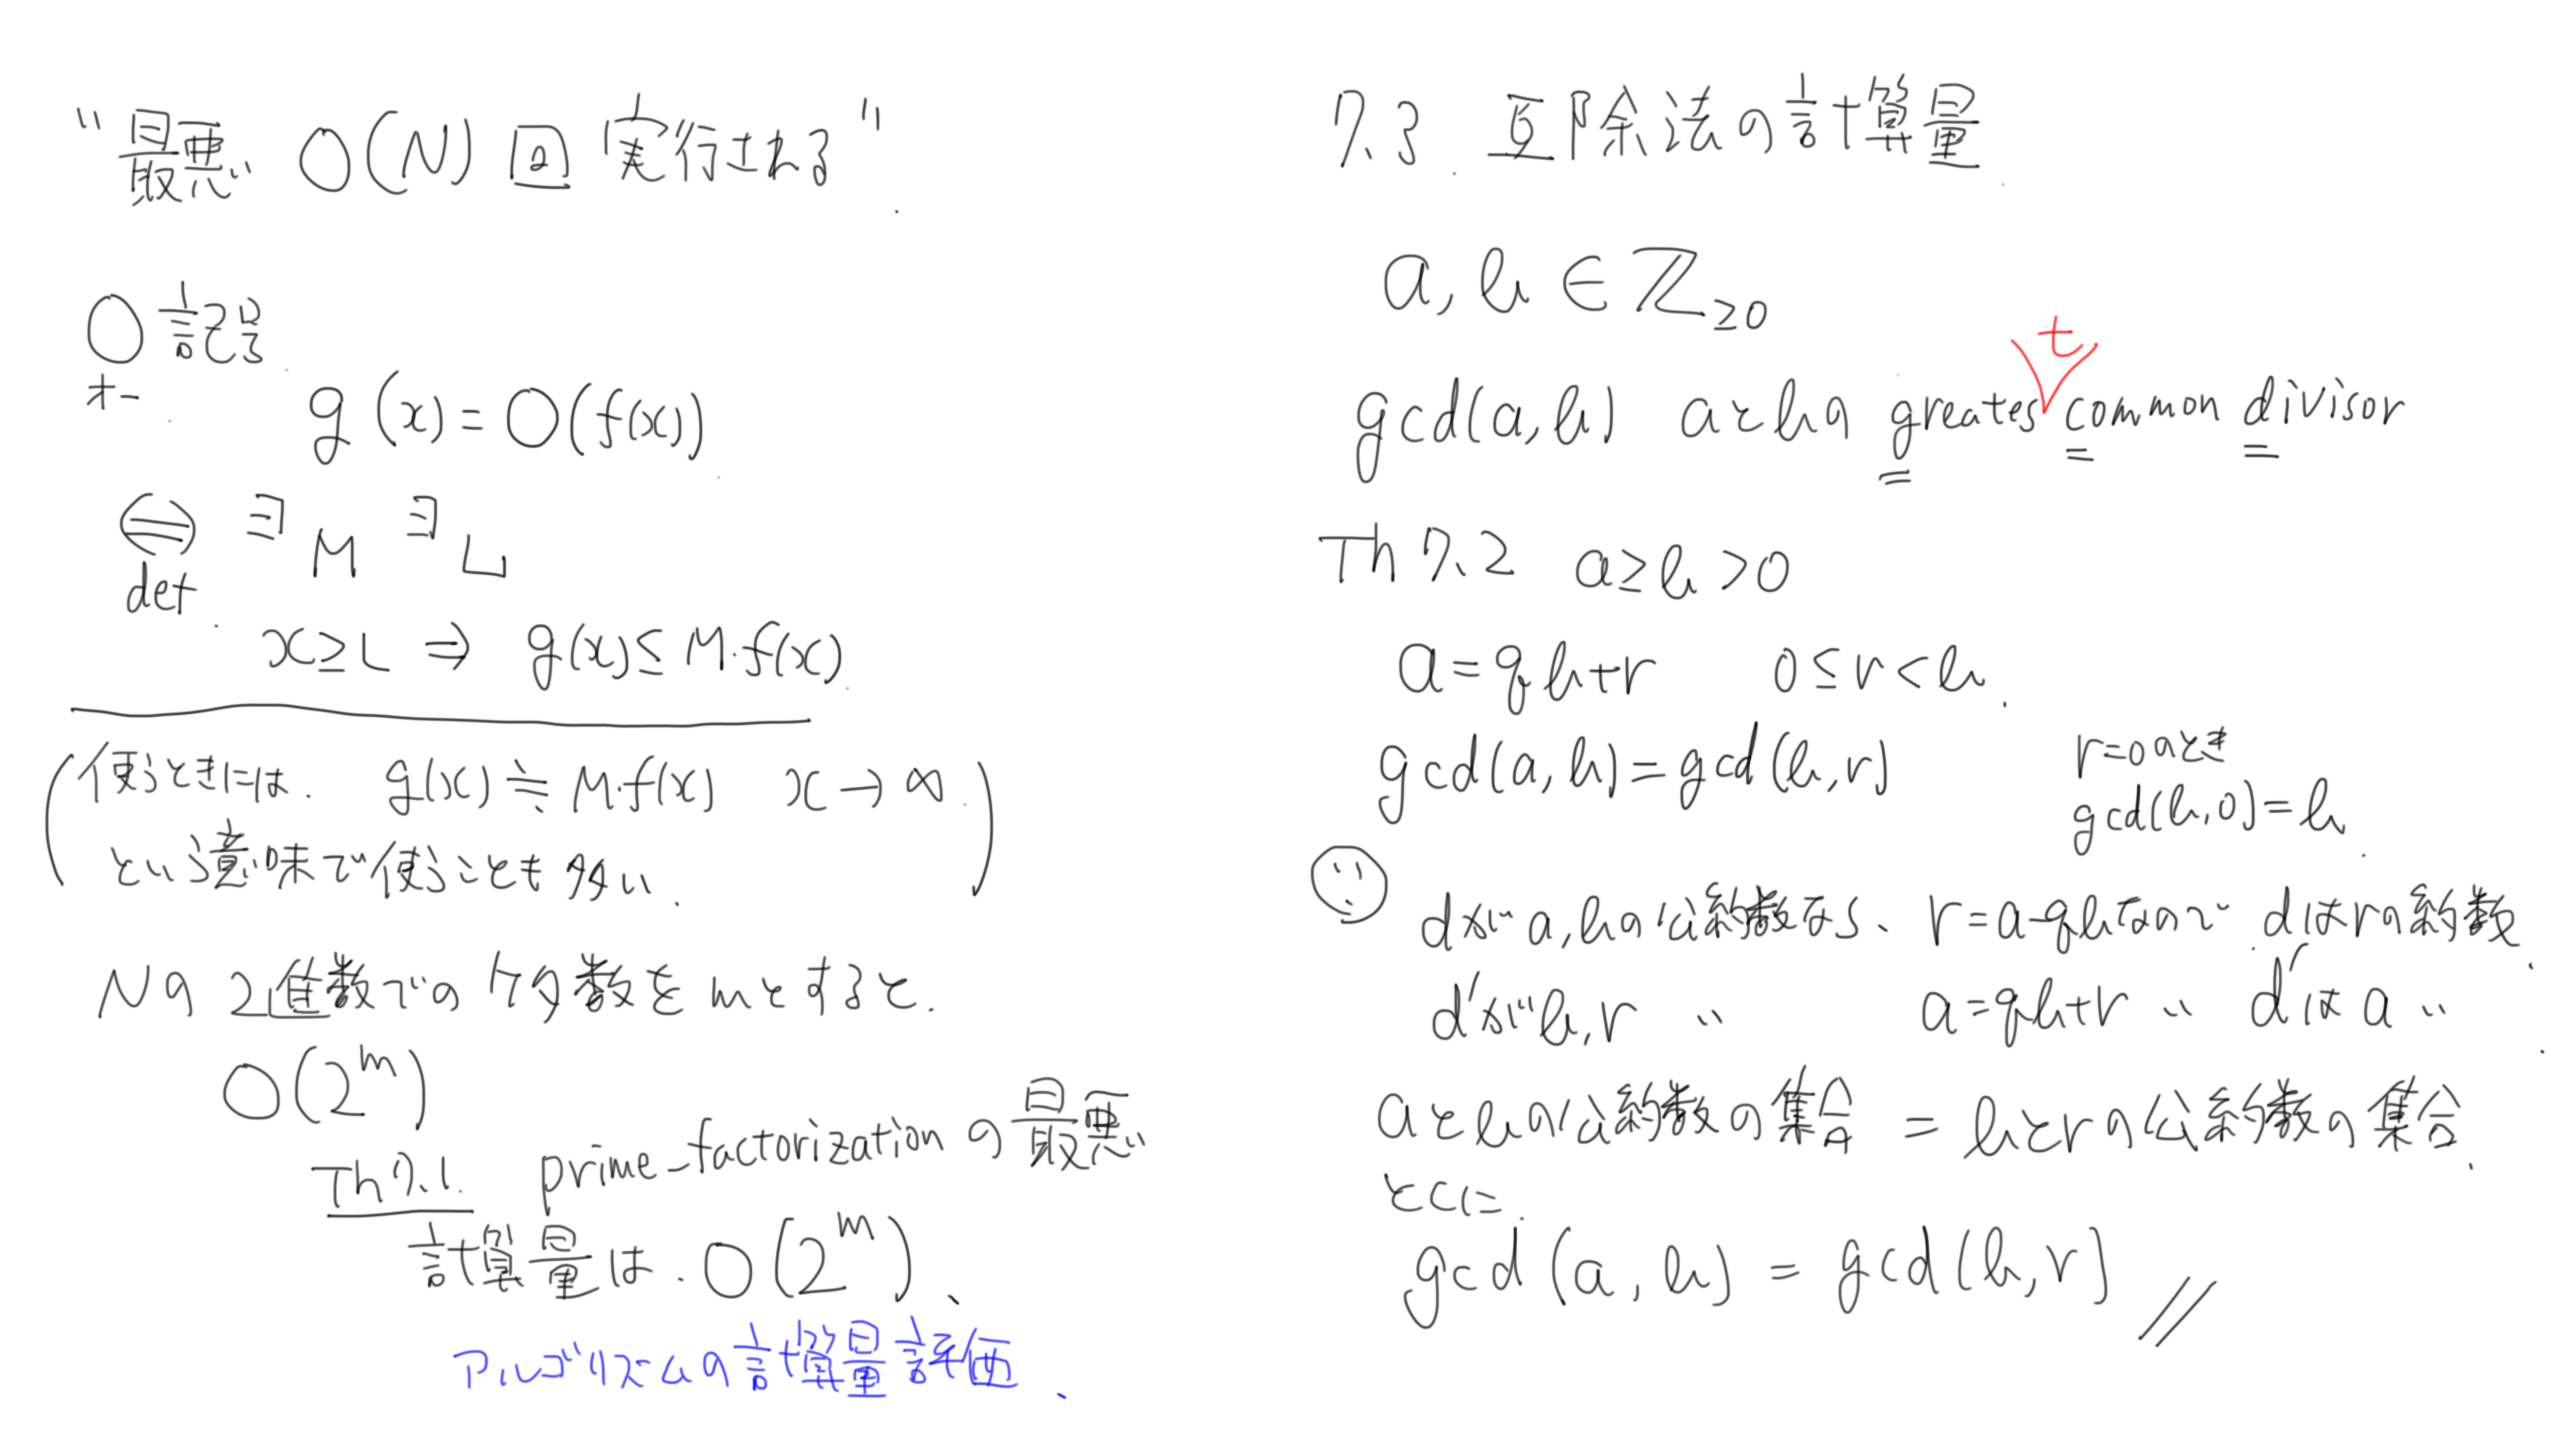 "最悪 O(N) 回 実行される"
O記号
オー
g(x) = O(f(x))
⇔ ∃M ∃L
def
x≥L ⇒ g(x) ≤ M・f(x)
(使うときには. g(x) ≒ M・f(x) x→∞
という意味で使うことも多い.)
Nの2進数でのケタ数をmとすると.
O(2^m)
Th7.1. prime_factorizationの最悪
計算量は. O(2^m)、
アルゴリズムの計算量評価、
7.3 互除法の計算量
a, b ∈ ℤ≥0
t
gcd(a,b) aとbの greates common divisor
Th 7.2 a≥b>0
a=qb+r 0≤r<b.
gcd(a,b)=gcd(b,r)
r=0のとき
gcd(b,0)=b.
dがa,bの公約数なら、r=a-qbなので dはrの約数.
d'がb,r 〃 a=qb+r 〃 d'はa 〃.
aとbの公約数の集合 = bとrの公約数の集合.
とくに.
gcd(a,b) = gcd(b,r) //